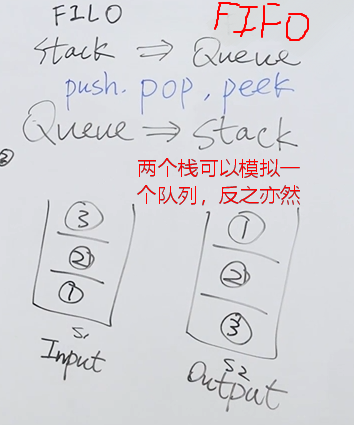 FILO FIFO
Stack ⇒ Queue
push. pop, peek
Queue ⇒ Stack
②
两个栈可以模拟一
个队列，反之亦然
③ ①
② ②
① ③
S1 S2
Input Output